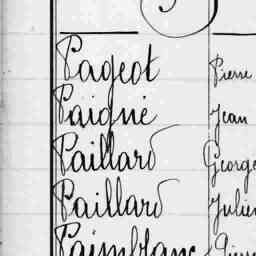 Pageot Pierre
Paigné Jean
Paillard George
Paillard Julien
Paimblanc Pierre